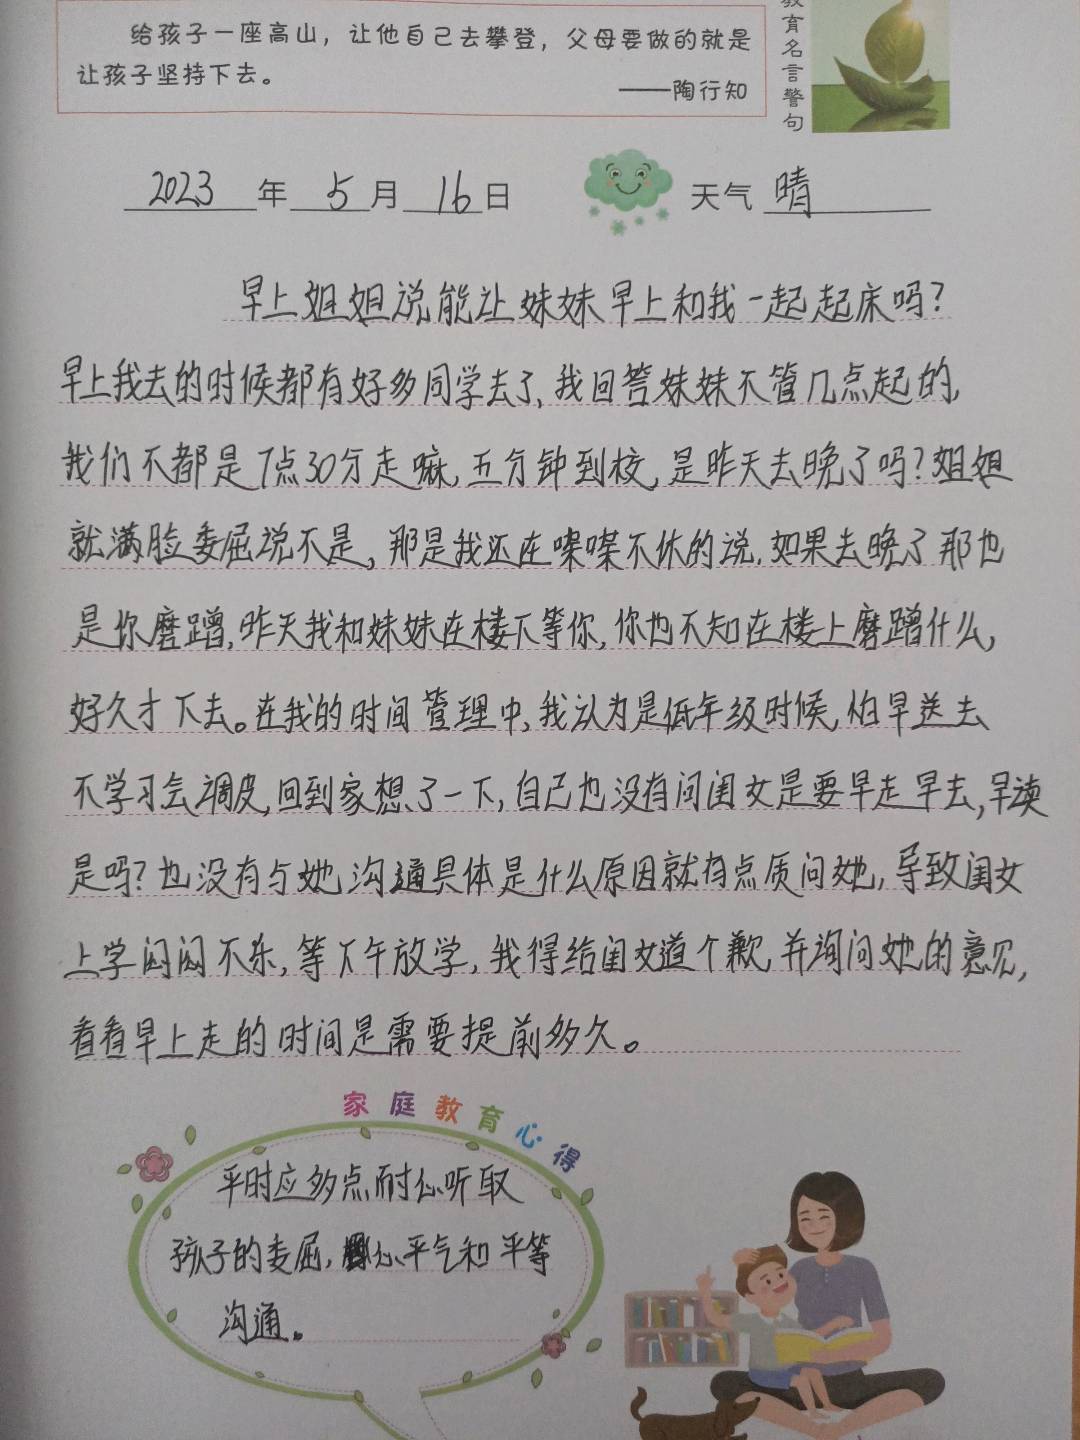 给孩子一座高山，让他自己去攀登，父母要做的就是
让孩子坚持下去。
——陶行知
教育名言警句
2023年5月16日 天气 晴
早上姐姐说能让妹妹早上和我一起起床吗?
早上我去的时候都有好多同学去了,我回答妹妹不管几点起的,
我们不都是7点30分走嘛,五分钟到校,是昨天去晚了吗?姐姐
就满脸委屈说不是,那是我还在喋喋不休的说.如果去晚了那也
是你磨蹭,昨天我和妹妹在楼下等你,你也不知在楼上磨蹭什么,
好久才下去。在我的时间管理中,我认为是低年级时候,怕早送去
不学习会调皮,回到家想了一下,自己也没有问闺女是要早走早去,早读
是吗?也没有与她沟通具体是什么原因就有点质问她,导致闺女
上学闷闷不乐,等下午放学,我得给闺女道个歉,并询问她的意见,
看看早上走的时间是需要提前多久。
家庭教育心得
平时应多点耐心听取
孩子的委屈,心平气和平等
沟通。